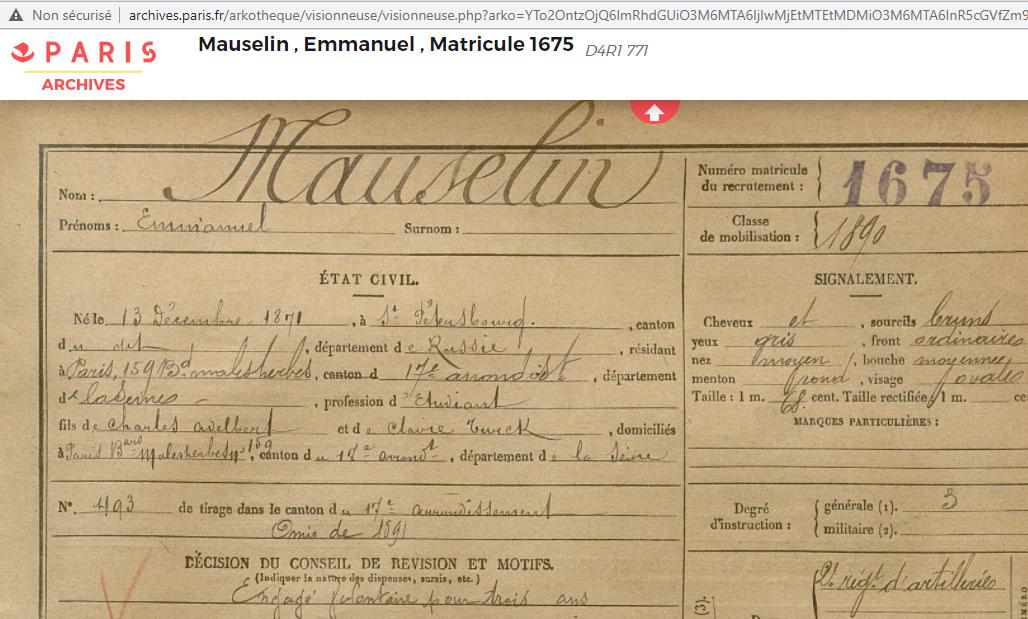 Non sécurisé | archives.paris.fr/arkotheque/visionneuse/visionneuse.php?arko=YTo2OntzOjQ6ImRhdGUiO3M6MTA6IjIwMjEtMTEtMDMiO3M6MTA6InR5cGVfZm3
PARIS
ARCHIVES
Mauselin , Emmanuel , Matricule 1675 D4R1 771
Nom : Mauselin
Prénoms : Emmanuel Surnom :
Numéro matricule du recrutement : 1675
Classe de mobilisation : 1890
ÉTAT CIVIL.
Né le 13 Décembre 1871, à St Pétersbourg, canton
du dit, département de Russie, résidant
à Paris, 159 Bd malesherbes, canton d 17e arrondist, département
de la Seine, profession d'Etudiant
fils de Charles Adelbert et de Claire Turck, domiciliés
à Paris Malesherbes 159, canton du 17e arrondt, département de la Seine
N°. 493 de tirage dans le canton du 17e arrondissement
Omis de 1891
DÉCISION DU CONSEIL DE REVISION ET MOTIFS.
(Indiquer la nature des dispenses, sursis, etc.)
Engagé volontaire pour trois ans
SIGNALEMENT.
Cheveux et, sourcils bruns
yeux gris, front ordinaires
nez moyen, bouche moyenne
menton rond, visage ovale
Taille : 1 m. 68 cent. Taille rectifiée 1 m. ce
MARQUES PARTICULIÈRES :
Degré d'instruction :
générale (1). 3
militaire (2).
2e régt d'artillerie
(3).
NUMÉRO